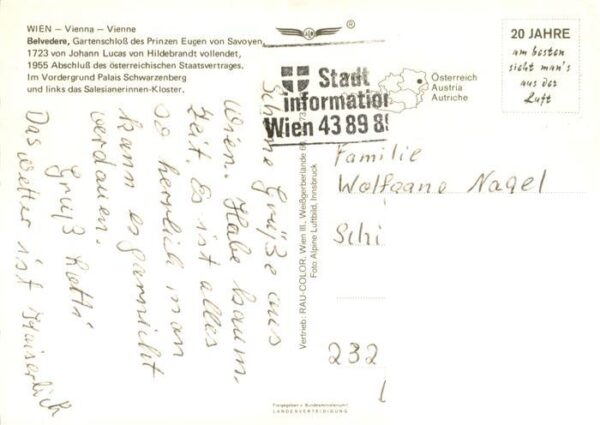 WIEN – Vienna – Vienne
Belvedere, Gartenschloß des Prinzen Eugen von Savoyen,
1723 von Johann Lucas von Hildebrandt vollendet,
1955 Abschluß des österreichischen Staatsvertrages.
Im Vordergrund Palais Schwarzenberg
und links das Salesianerinnen-Kloster.
®
Stadt
information
Wien 43 89 8
Österreich
Austria
Autriche
20 JAHRE
am besten
sieht man's
aus der
Luft
Schöne Grüße aus
Wien. Habe kaum
Zeit. Es ist alles
so herrlich man
kann es garnicht
verdauen.
Gruß
Das Wetter ist Kaiserlich
Vertrieb: RAU-COLOR, Wien III., Weißgerberlände
Foto Alpine Luftbild, Innsbruck
Familie
Wolfgang Nagel
Schi
232
Freigegeben v. Bundesministerium f.
LANDESVERTEIDIGUNG